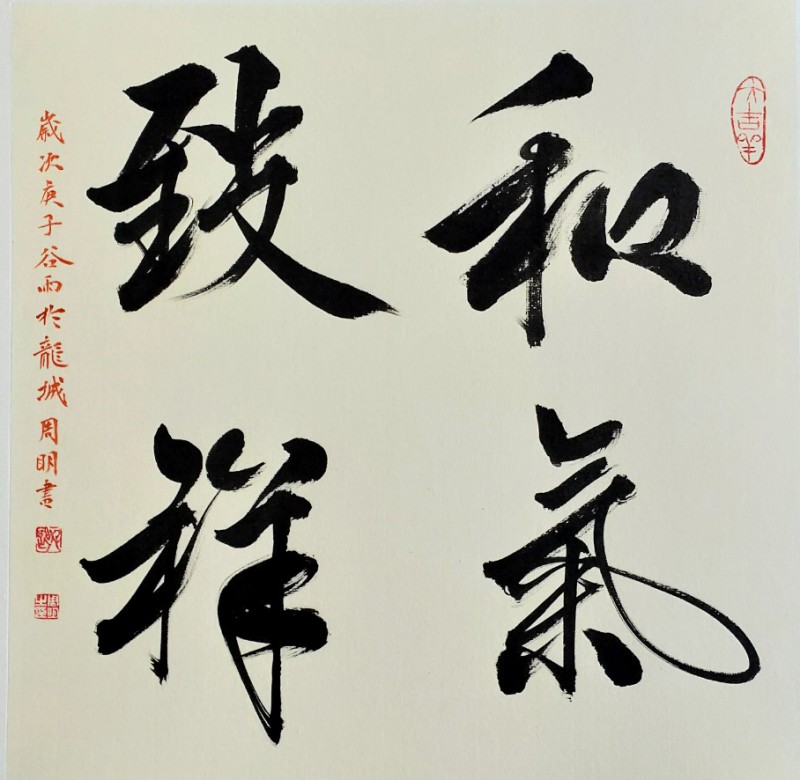 和氣
致祥
大吉羊
歲次庚子谷雨於龍城周明書